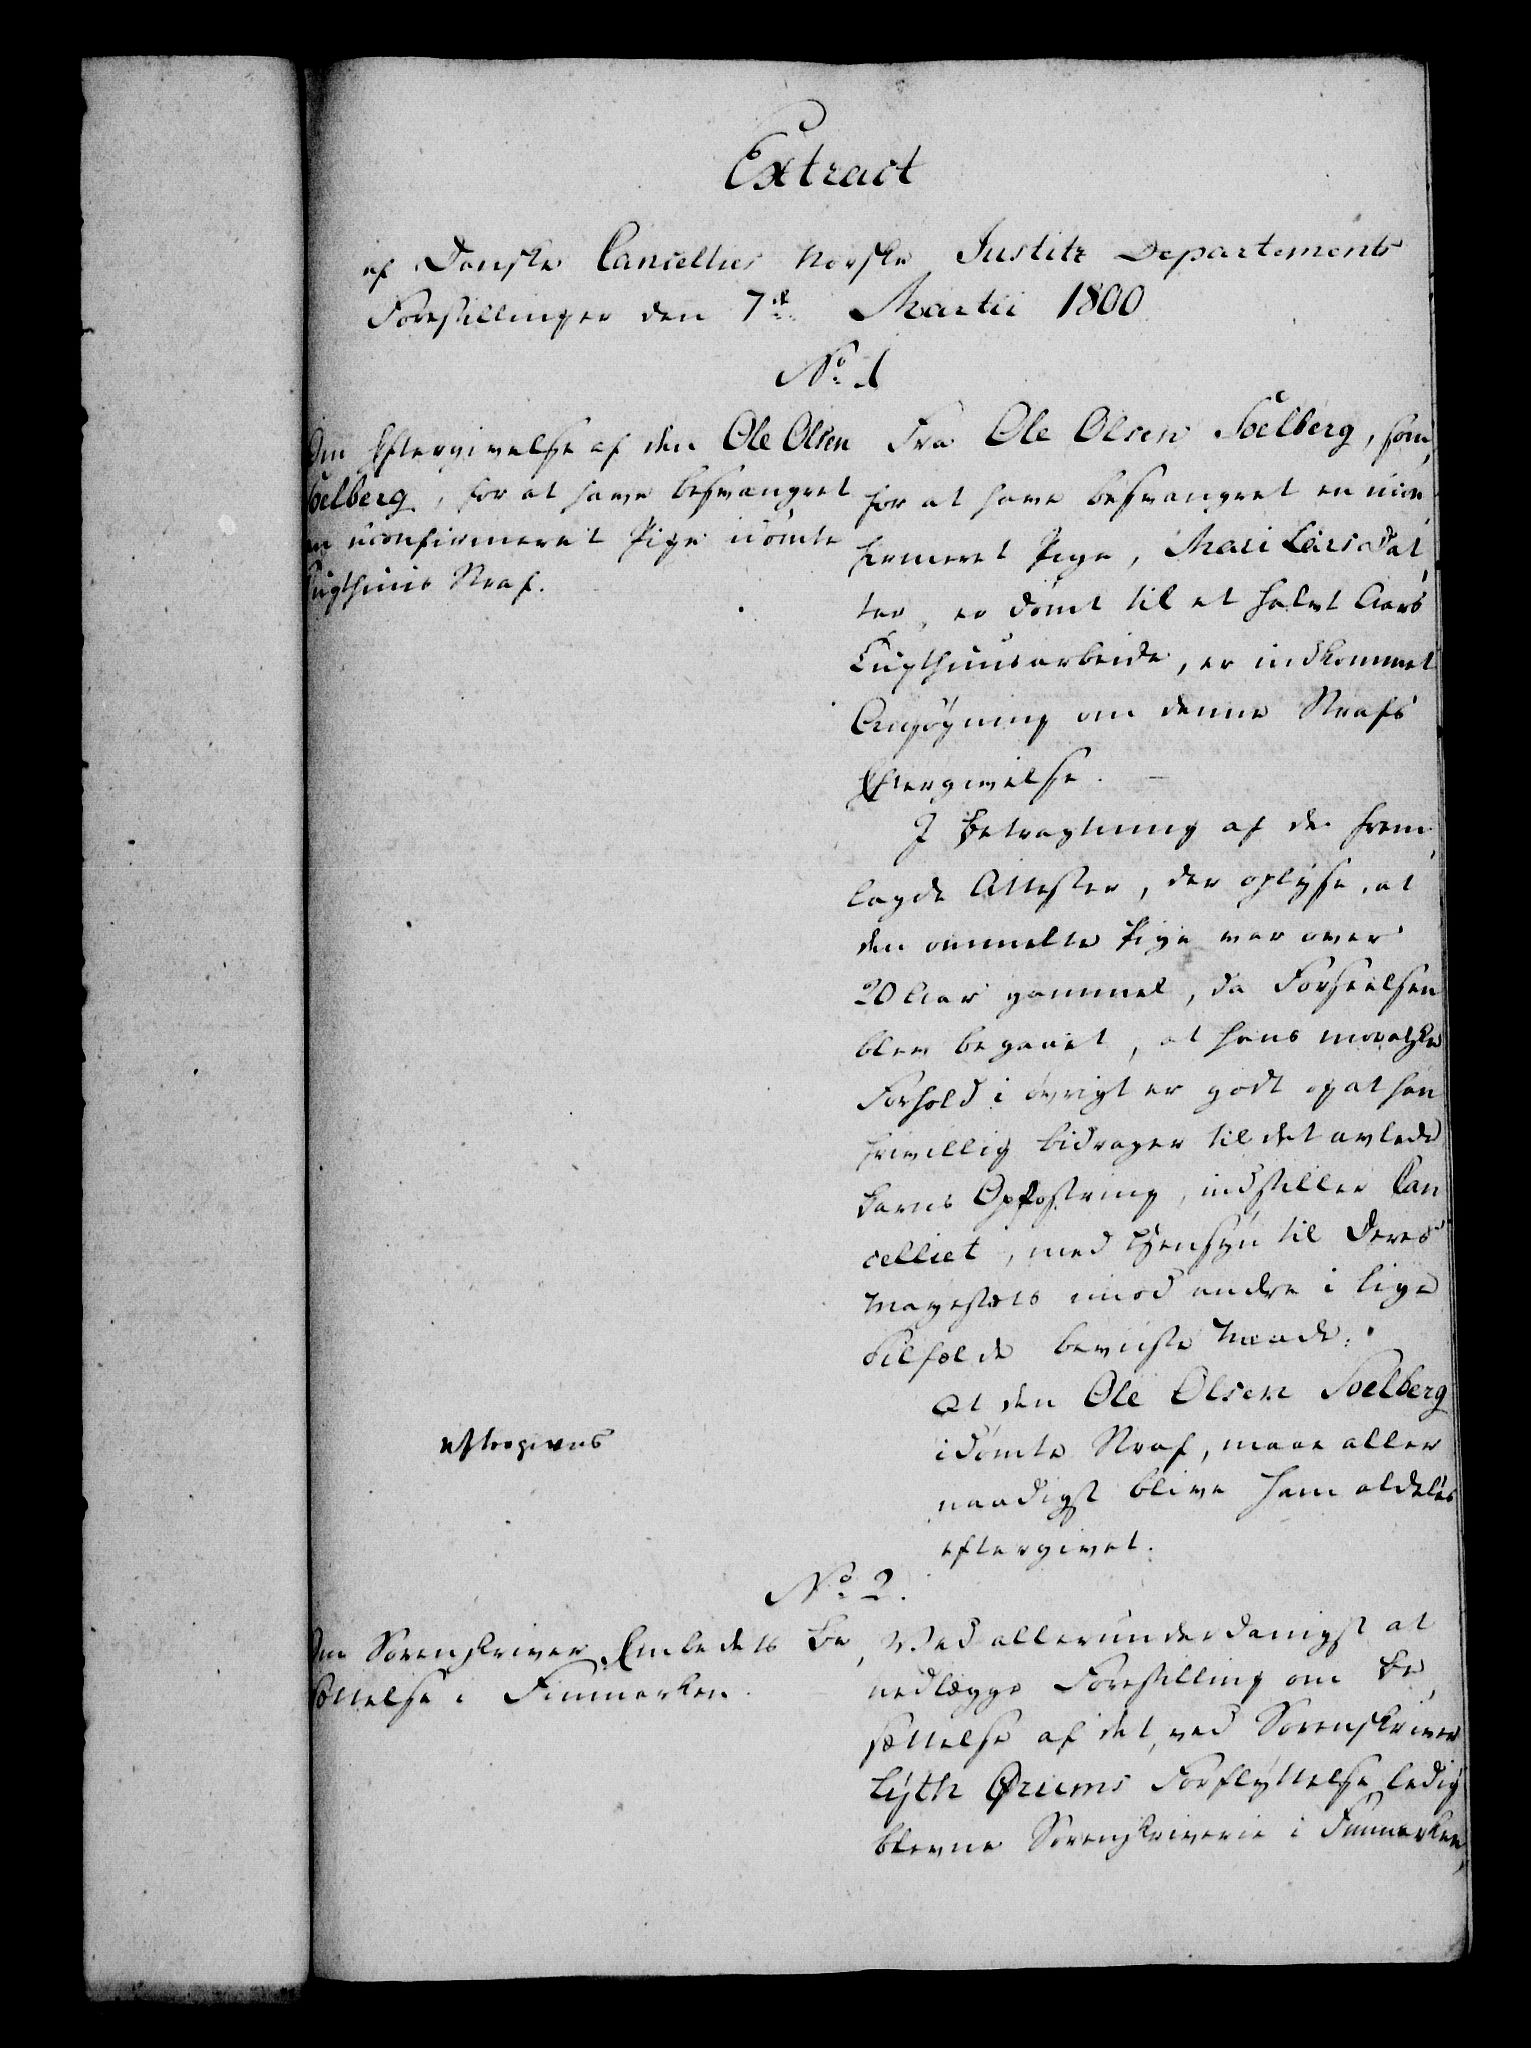 Extract
af Danske Cancellies Norske Justitz Departements
Forestillinger den 7de Martii 1800
No 1
Om Eftergivelse af den Ole Olsen
Soelberg, for at have besvangret
en uconfirmeret Pige idömte
Tugthuus Straf.
Fra Ole Olsen Soelberg, som
for at have besvangret en ucon
firmeret Pige, Mari Lars Dat
ter, er dömt til et halvt Aars
Tugthuusarbeide, er indkommet
Ansögning om denne Strafs
Eftergivelse.
I Betragtning af de frem
lagde Attester, der oplyse, at
den ommelte Pige var over
20 Aar gammel, da Forseelsen
blev begaaet, at hans moralske
Forhold i övrigt er godt og at han
frivillig bidrager til det avlede
Barns Opfostring, indstiller Can
celliet, med Hensyn til Deres
Majestæts imod andre i lige
Tilfælde beviiste Naade:
At den Ole Olsen Soelberg
idömte Straf, maae aller
naadigst blive ham aldeles
eftergivet.
eftergives
No 2.
Om Sorenskriver Embedets Be
sættelse i Finmarken.
Ved allerunderdanigst at
nedlægge Forestilling om Be
sættelse af det, ved Sorenskriver
Lyth Ørums Forflyttelse ledig
blevne Sorenskriverie i Finmarken,